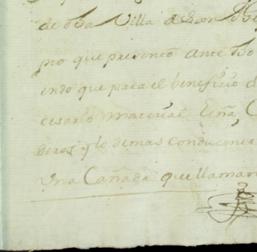 de dha Villa
pro que presento ante
endo que para el beneficio d
cesario Materias Leña, C
beros, y lo demas conducen
Una Cañada que llaman